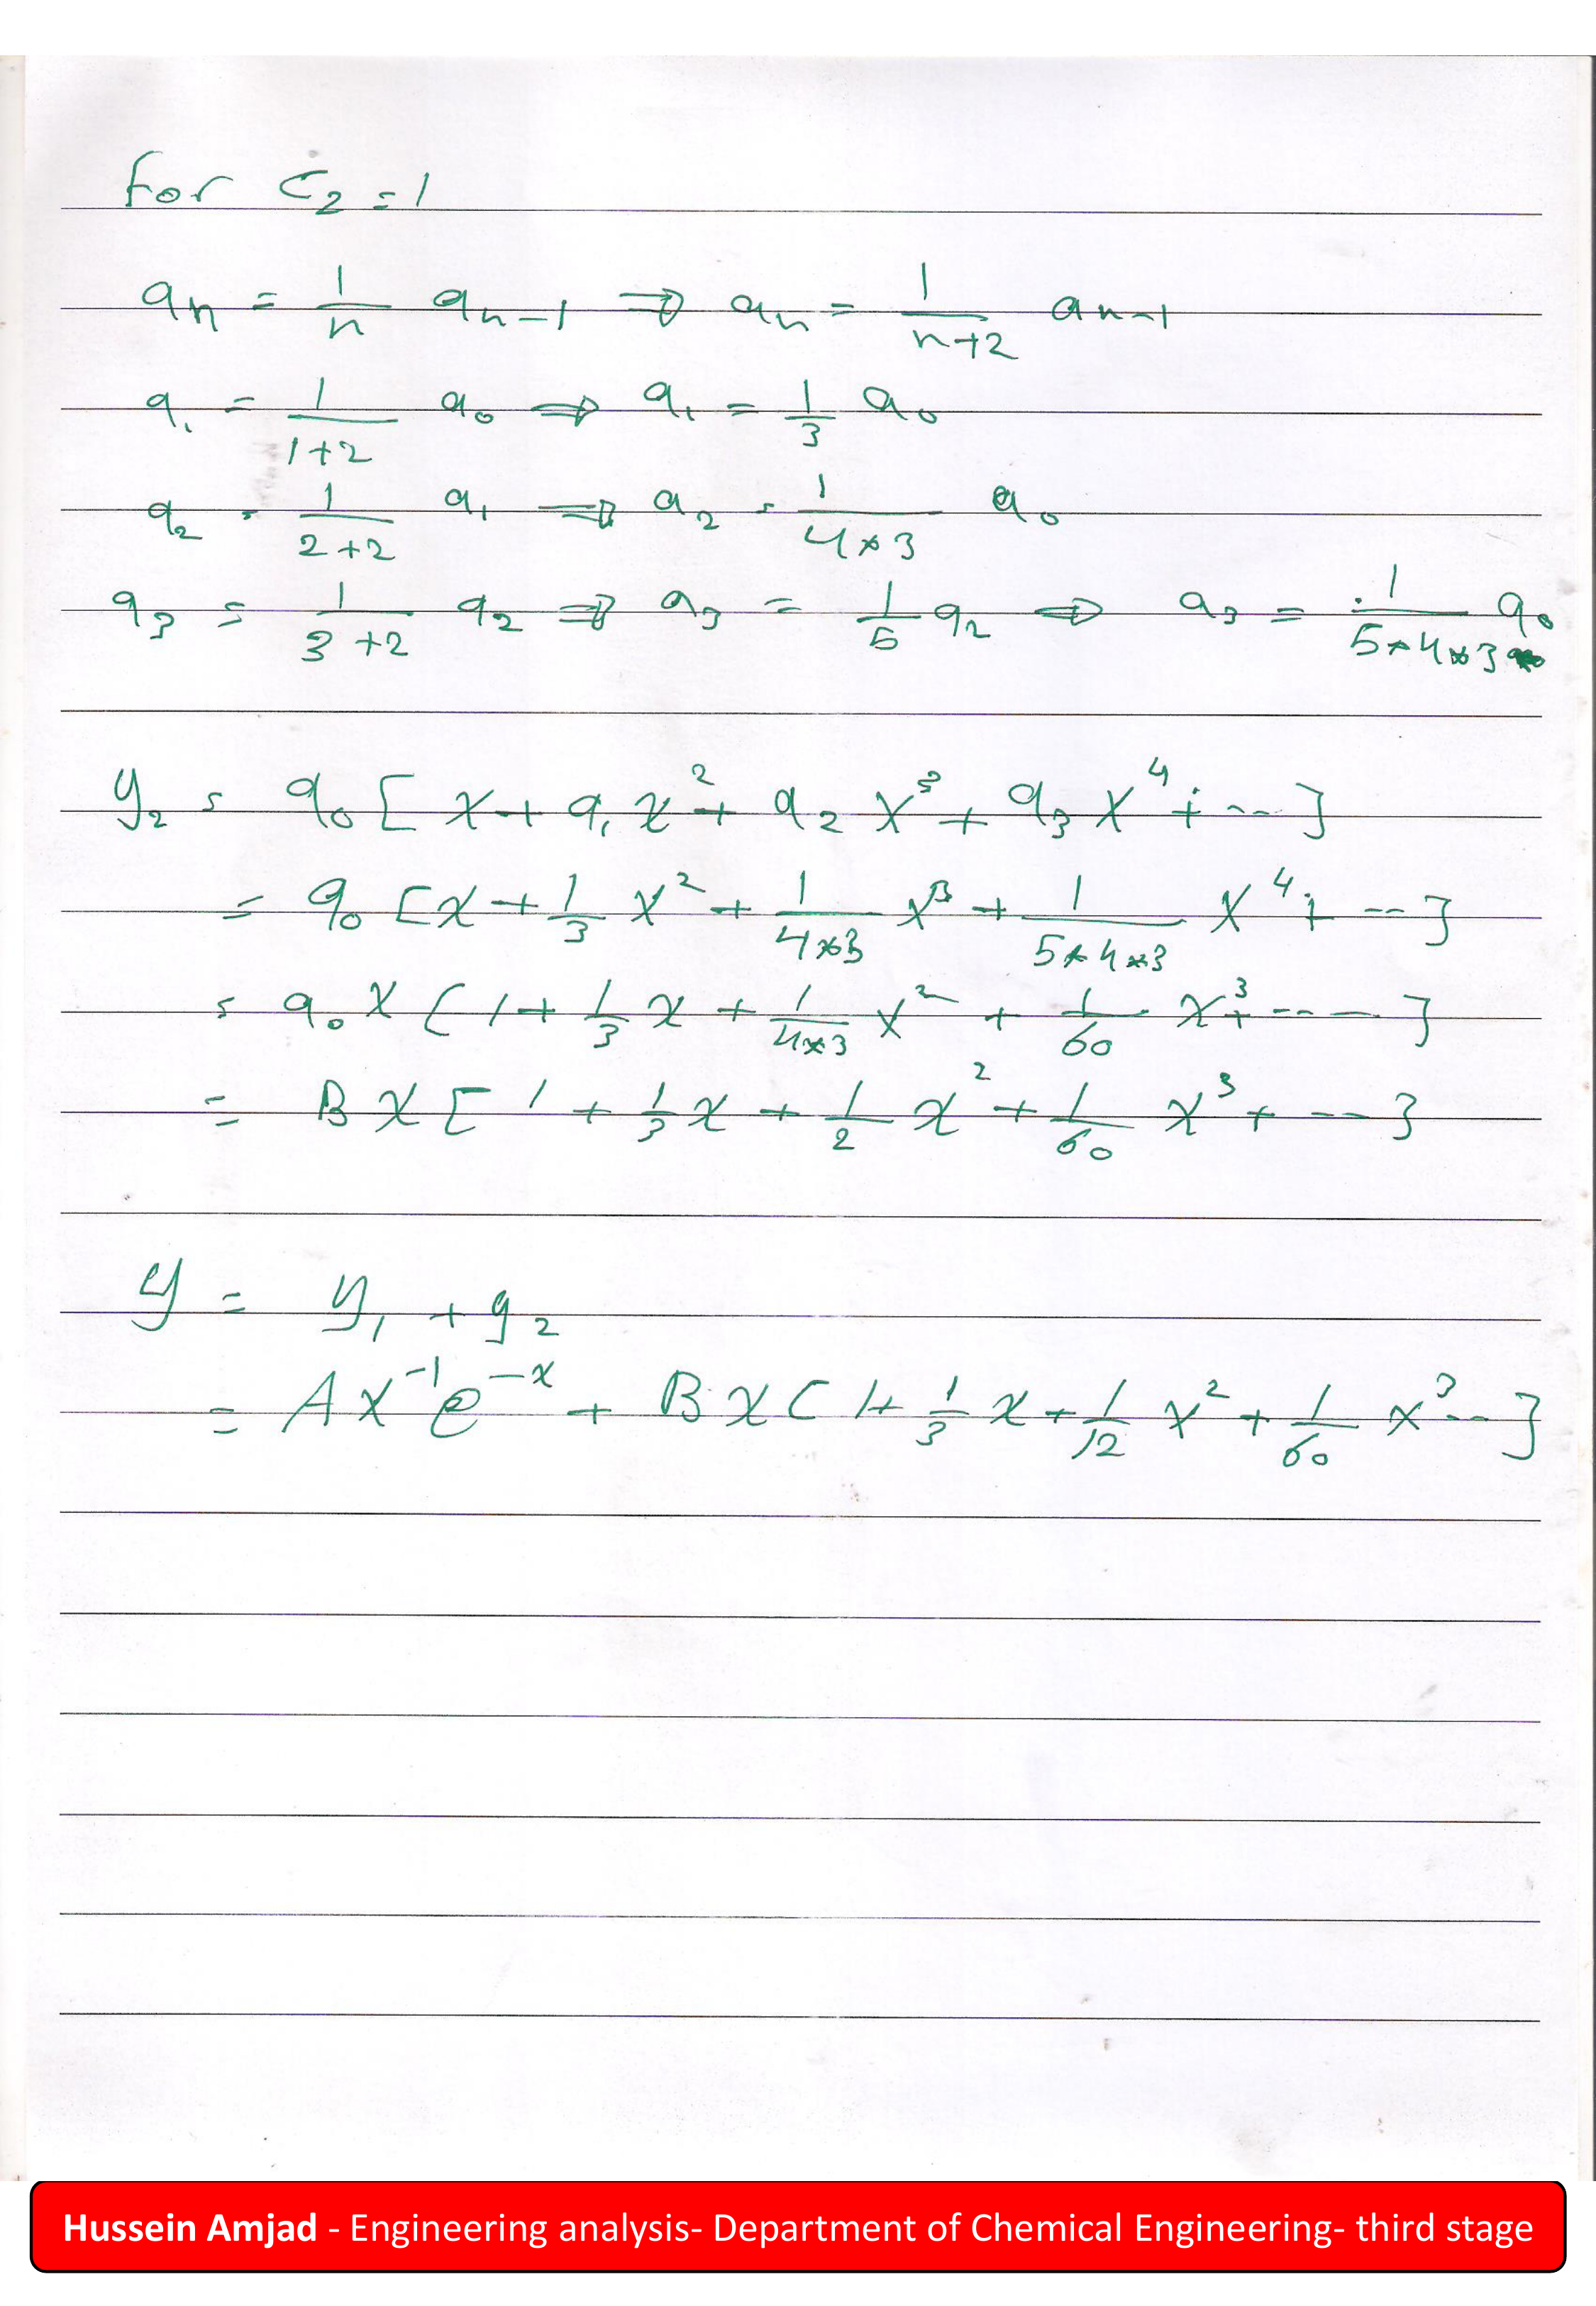 For C₂ = 1
aₙ = 1/n aₙ₋₁ ⇒ aₙ = 1/(n+2) aₙ₋₁
a₁ = 1/(1+2) a₀ ⇒ a₁ = 1/3 a₀
a₂ = 1/(2+2) a₁ ⇒ a₂ = 1/(4*3) a₀
a₃ = 1/(3+2) a₂ ⇒ a₃ = 1/5 a₂ ⇒ a₃ = 1/(5*4*3) a₀
y₂ = a₀ [x + a₁ x² + a₂ x³ + a₃ x⁴ + ---]
= a₀ [x + 1/3 x² + 1/(4*3) x³ + 1/(5*4*3) x⁴ + ---]
= a₀ x [1 + 1/3 x + 1/(4*3) x² + 1/60 x³ + ----]
= B x [1 + 1/3 x + 1/2 x² + 1/60 x³ + ---]
y = y₁ + y₂
= A x⁻¹ e⁻ˣ + B x [1 + 1/3 x + 1/12 x² + 1/60 x³ ---]
Hussein Amjad - Engineering analysis- Department of Chemical Engineering- third stage